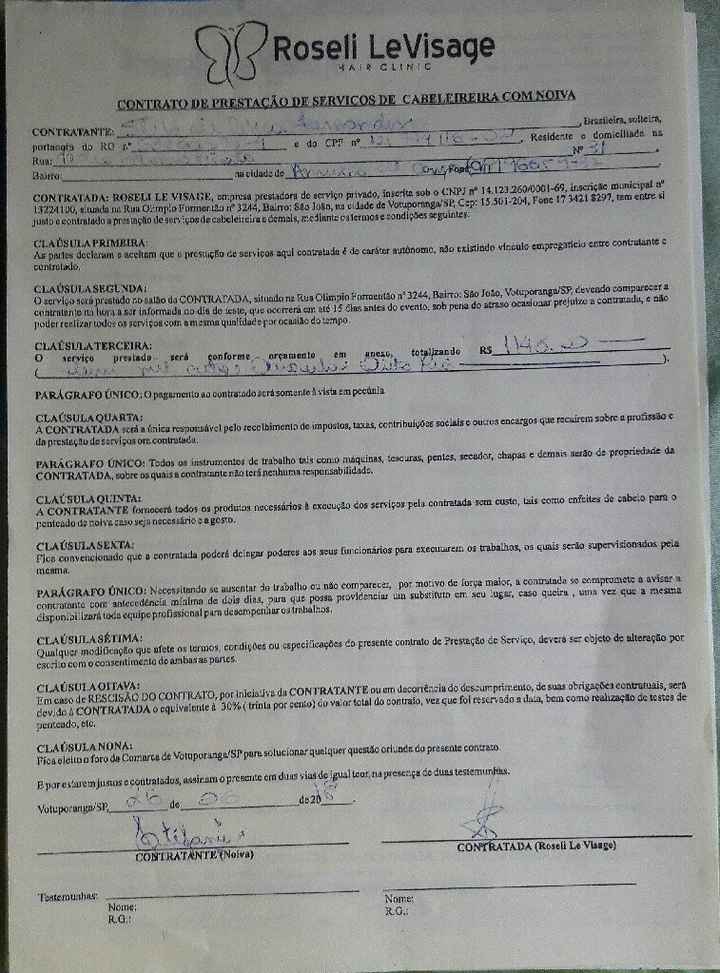 Roseli LeVisage
HAIR CLINIC
CONTRATO DE PRESTAÇÃO DE SERVIÇOS DE CABELEIREIRA COM NOIVA
CONTRATANTE: Fernandes, Brasileira, solteira,
portanota do RG n.º e do CPF nº Residente o domiciliada na
Rua: Nº 31
Bairro: na cidade de Fone
CONTRATADA: ROSELI LE VISAGE, empresa prestadora de serviço privado, inscrita sob o CNPJ nº 14.123.260/0001-69, inscrição municipal nº
13224100, situada na Rua Olimpio Formentão nº 3244, Bairro: São João, na cidade de Votuporanga/SP, Cep: 15.501-204, Fone 17 3421 8297, tem entre si
justo e contratado a prestação de serviços de cabeleireira e demais, mediante os termos e condições seguintes:
CLAÚSULA PRIMEIRA:
As partes declaram e aceitam que o prestação de serviços aqui contratada é de caráter autônomo, não existindo vínculo empregatício entre contratante e
contratado.
CLAÚSULA SEGUNDA:
O serviço será prestado no salão da CONTRATADA, situado na Rua Olimpio Formentão nº 3244, Bairro: São João, Votuporanga/SP, devendo comparecer a
contratante na hora a ser informada no dia de teste, que ocorrerá em até 15 dias antes do evento, sob pena do atraso ocasionar prejuízo a contratada, e não
poder realizar todos os serviços com a mesma qualidade por ocasião do tempo.
CLAÚSULA TERCEIRA:
O serviço prestado será conforme orçamento em anexo, totalizando R$ 1148,00
( mil ).
PARÁGRAFO ÚNICO: O pagamento ao contratado será somente à vista em pecúnia.
CLAÚSULA QUARTA:
A CONTRATADA será a única responsável pelo recolhimento de impostos, taxas, contribuições sociais e outros encargos que recaírem sobre a profissão e
da prestação de serviços ora contratada.
PARÁGRAFO ÚNICO: Todos os instrumentos de trabalho tais como máquinas, tesouras, pentes, secador, chapas e demais serão de propriedade da
CONTRATADA, sobre os quais a contratante não terá nenhuma responsabilidade.
CLAÚSULA QUINTA:
A CONTRATANTE fornecerá todos os produtos necessários à execução dos serviços pela contratada sem custo, tais como enfeites de cabelo para o
penteado de noiva caso seja necessário e a gosto.
CLAÚSULA SEXTA:
Fica convencionado que a contratada poderá delegar poderes aos seus funcionários para executarem os trabalhos, os quais serão supervisionados pela
mesma.
PARÁGRAFO ÚNICO: Necessitando se ausentar do trabalho ou não comparecer, por motivo de força maior, a contratada se compromete a avisar a
contratante com antecedência mínima de dois dias, para que possa providenciar um substituto em seu lugar, caso queira , uma vez que a mesma
disponibilizará toda equipe profissional para desempenhar os trabalhos.
CLAÚSULA SÉTIMA:
Qualquer modificação que afete os termos, condições ou especificações do presente contrato de Prestação de Serviço, deverá ser objeto de alteração por
escrito com o consentimento de ambas as partes.
CLAÚSULA OITAVA:
Em caso de RESCISÃO DO CONTRATO, por iniciativa da CONTRATANTE ou em decorrência do descumprimento, de suas obrigações contratuais, será
devido à CONTRATADA o equivalente à 30% ( trinta por cento) do valor total do contrato, vez que foi reservado a data, bem como realização de testes de
penteado, etc.
CLAÚSULA NONA:
Fica eleito o foro da Comarca de Votuporanga/SP para solucionar qualquer questão oriunda do presente contrato.
E por estarem justos e contratados, assinam o presente em duas vias de igual teor, na presença de duas testemunhas.
Votuporanga/SP, 26 de 06 de 2018.
CONTRATANTE (Noiva)
CONTRATADA (Roseli Le Visage)
Testemunhas:
Nome:
R.G.:
Nome:
R.G.: